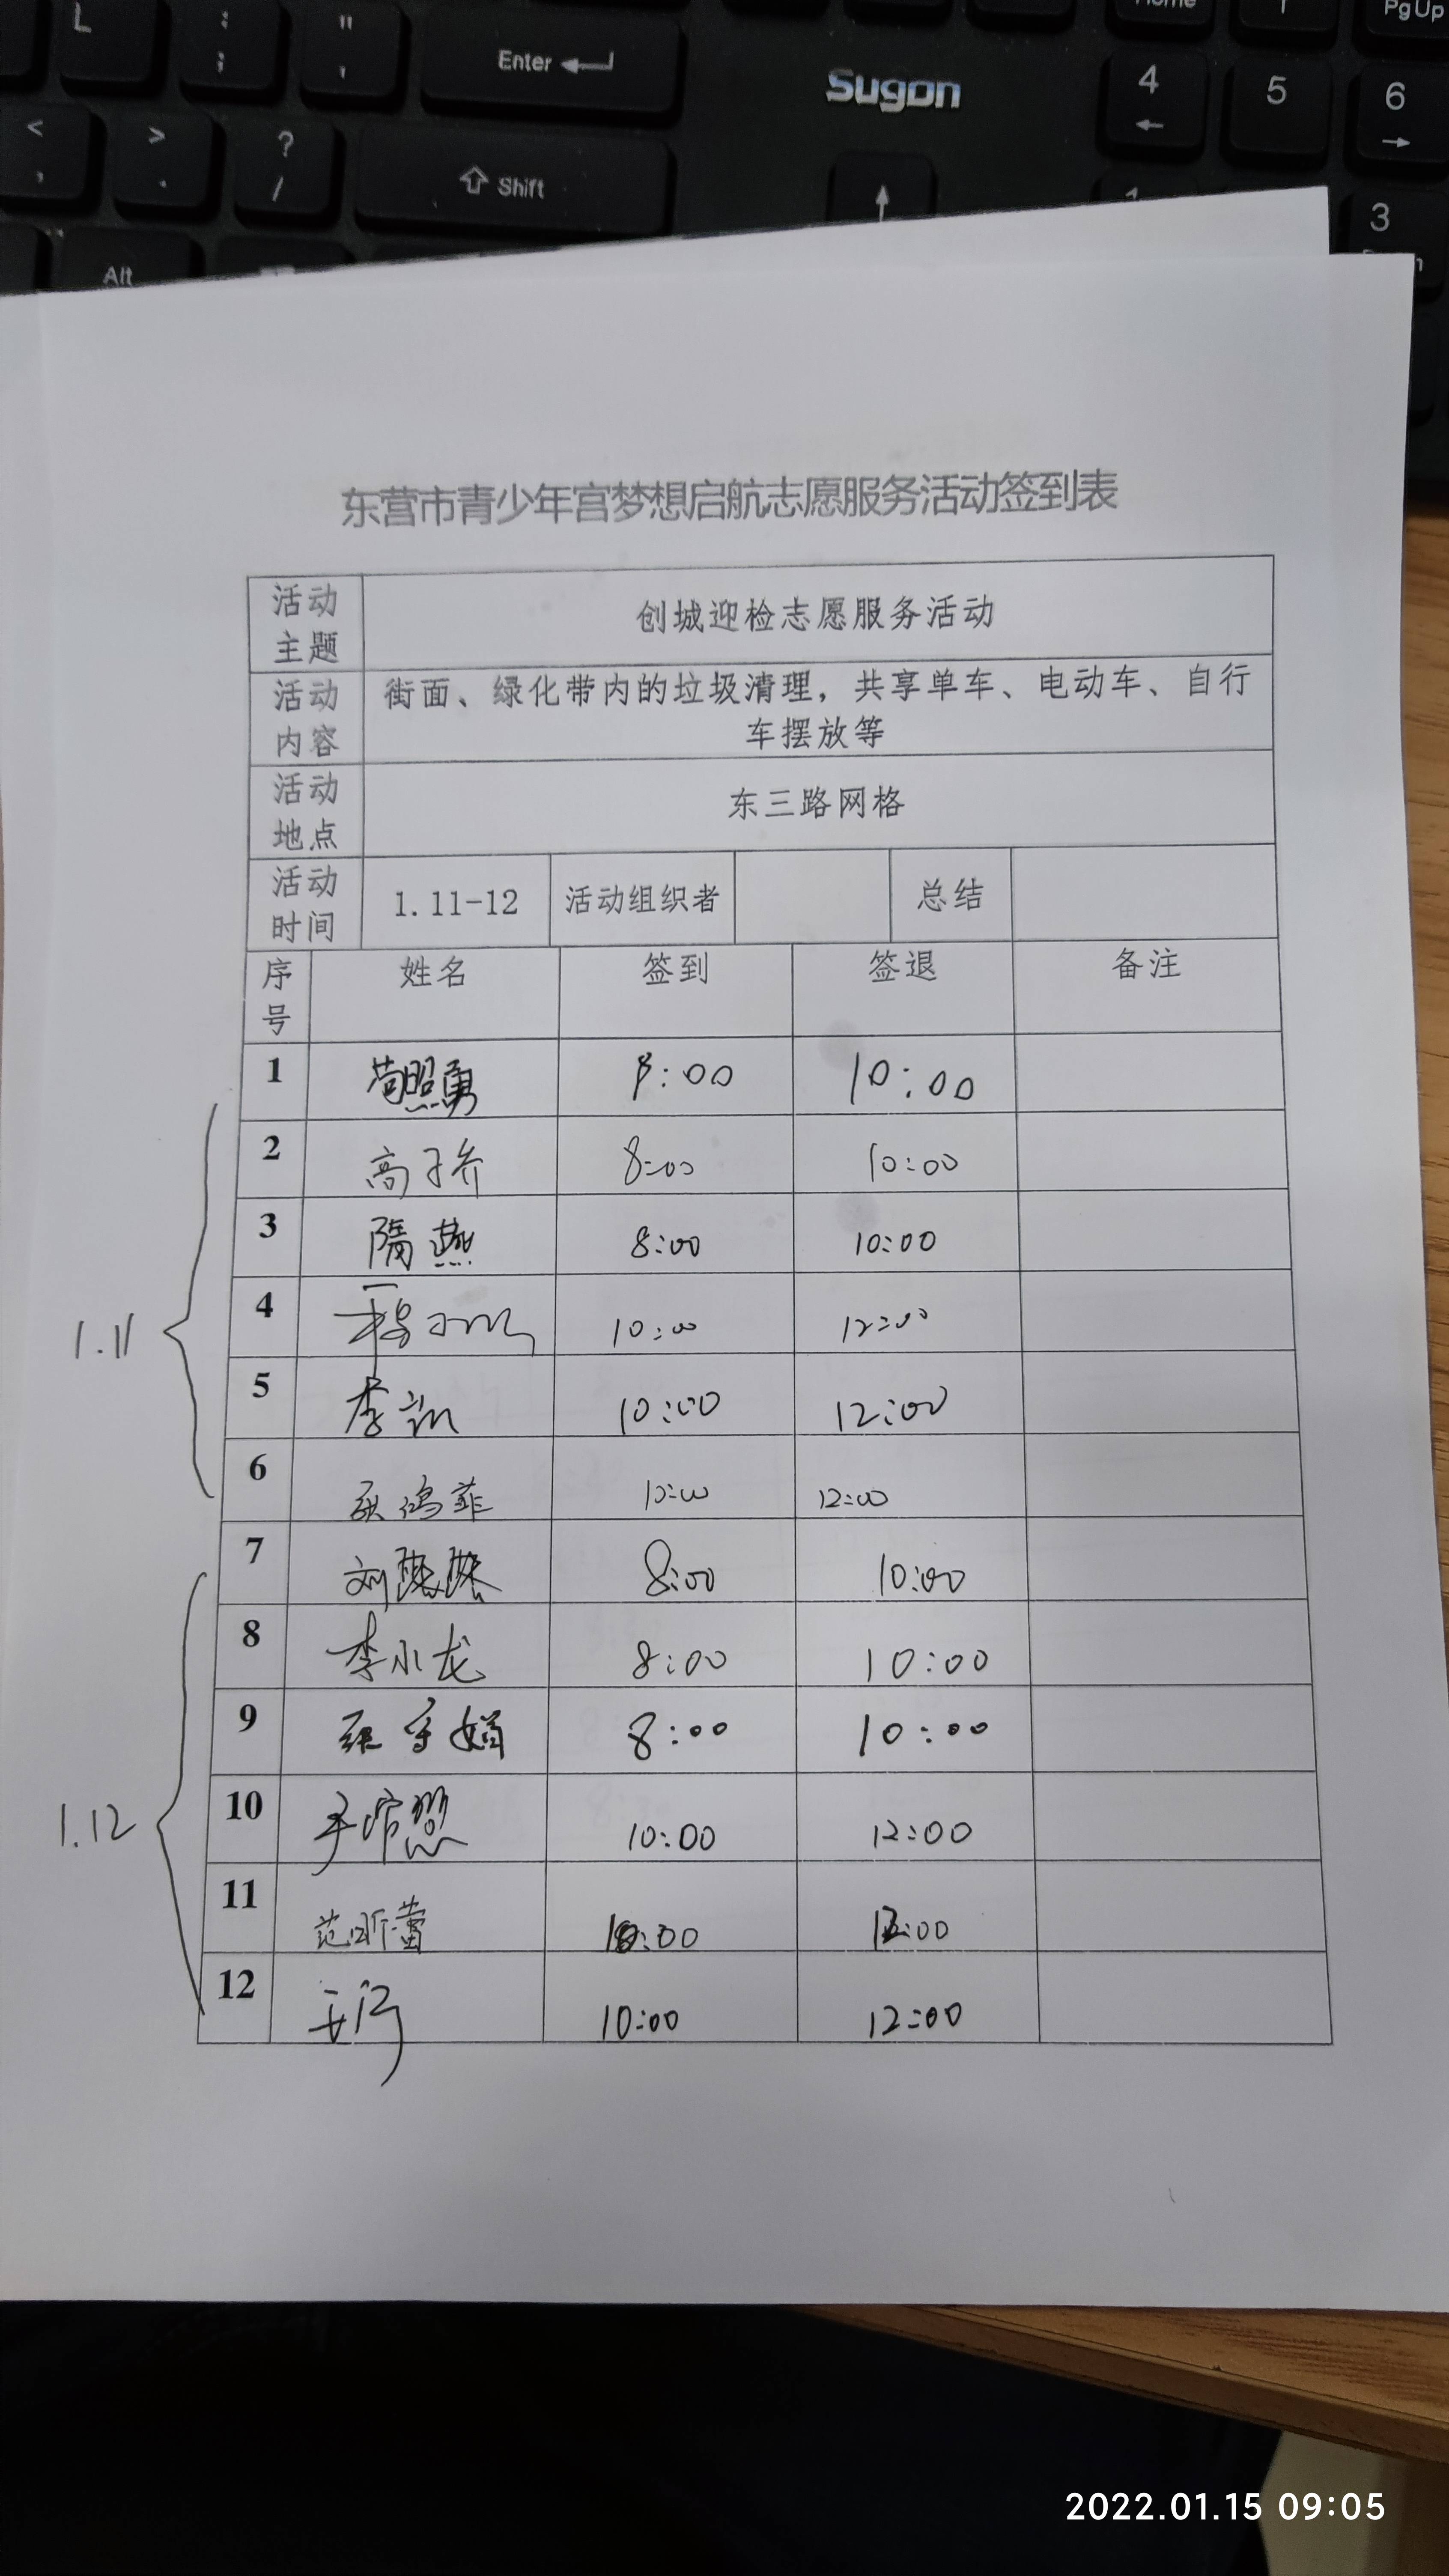 L : ; " ' Enter Home PgUp
Sugon 4 5 6
< , > . ? / Shift 1 3
Alt
东营市青少年宫梦想启航志愿服务活动签到表
活动主题 创城迎检志愿服务活动
活动内容 街面、绿化带内的垃圾清理，共享单车、电动车、自行
车摆放等
活动地点 东三路网格
活动时间 1.11-12 活动组织者 总结
序号 姓名 签到 签退 备注
1 苟照勇 8:00 10:00
2 高子乔 8:00 10:00
3 隋燕 8:00 10:00
1.11
4 10:00 12:00
5 李凯 10:00 12:00
6 鸿菲 10:00 12:00
7 刘 8:00 10:00
8 李小龙 8:00 10:00
9 张守娟 8:00 10:00
1.12
10 10:00 12:00
11 范昕蕾 10:00 12:00
12 10:00 12:00
2022.01.15 09:05